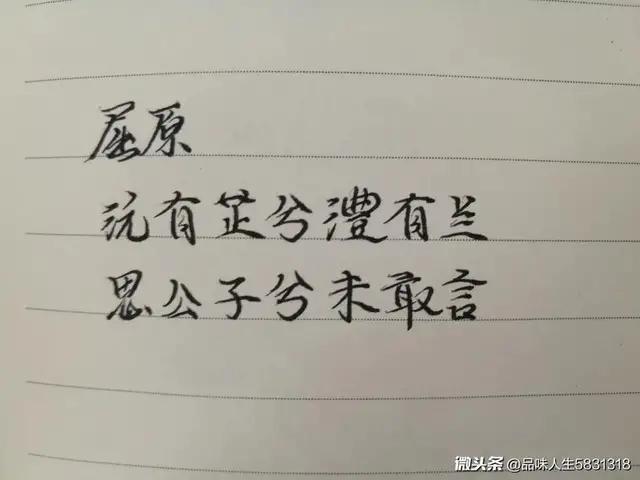 屈原
沅有芷兮澧有兰
思公子兮未敢言
微头条 @品味人生5831318